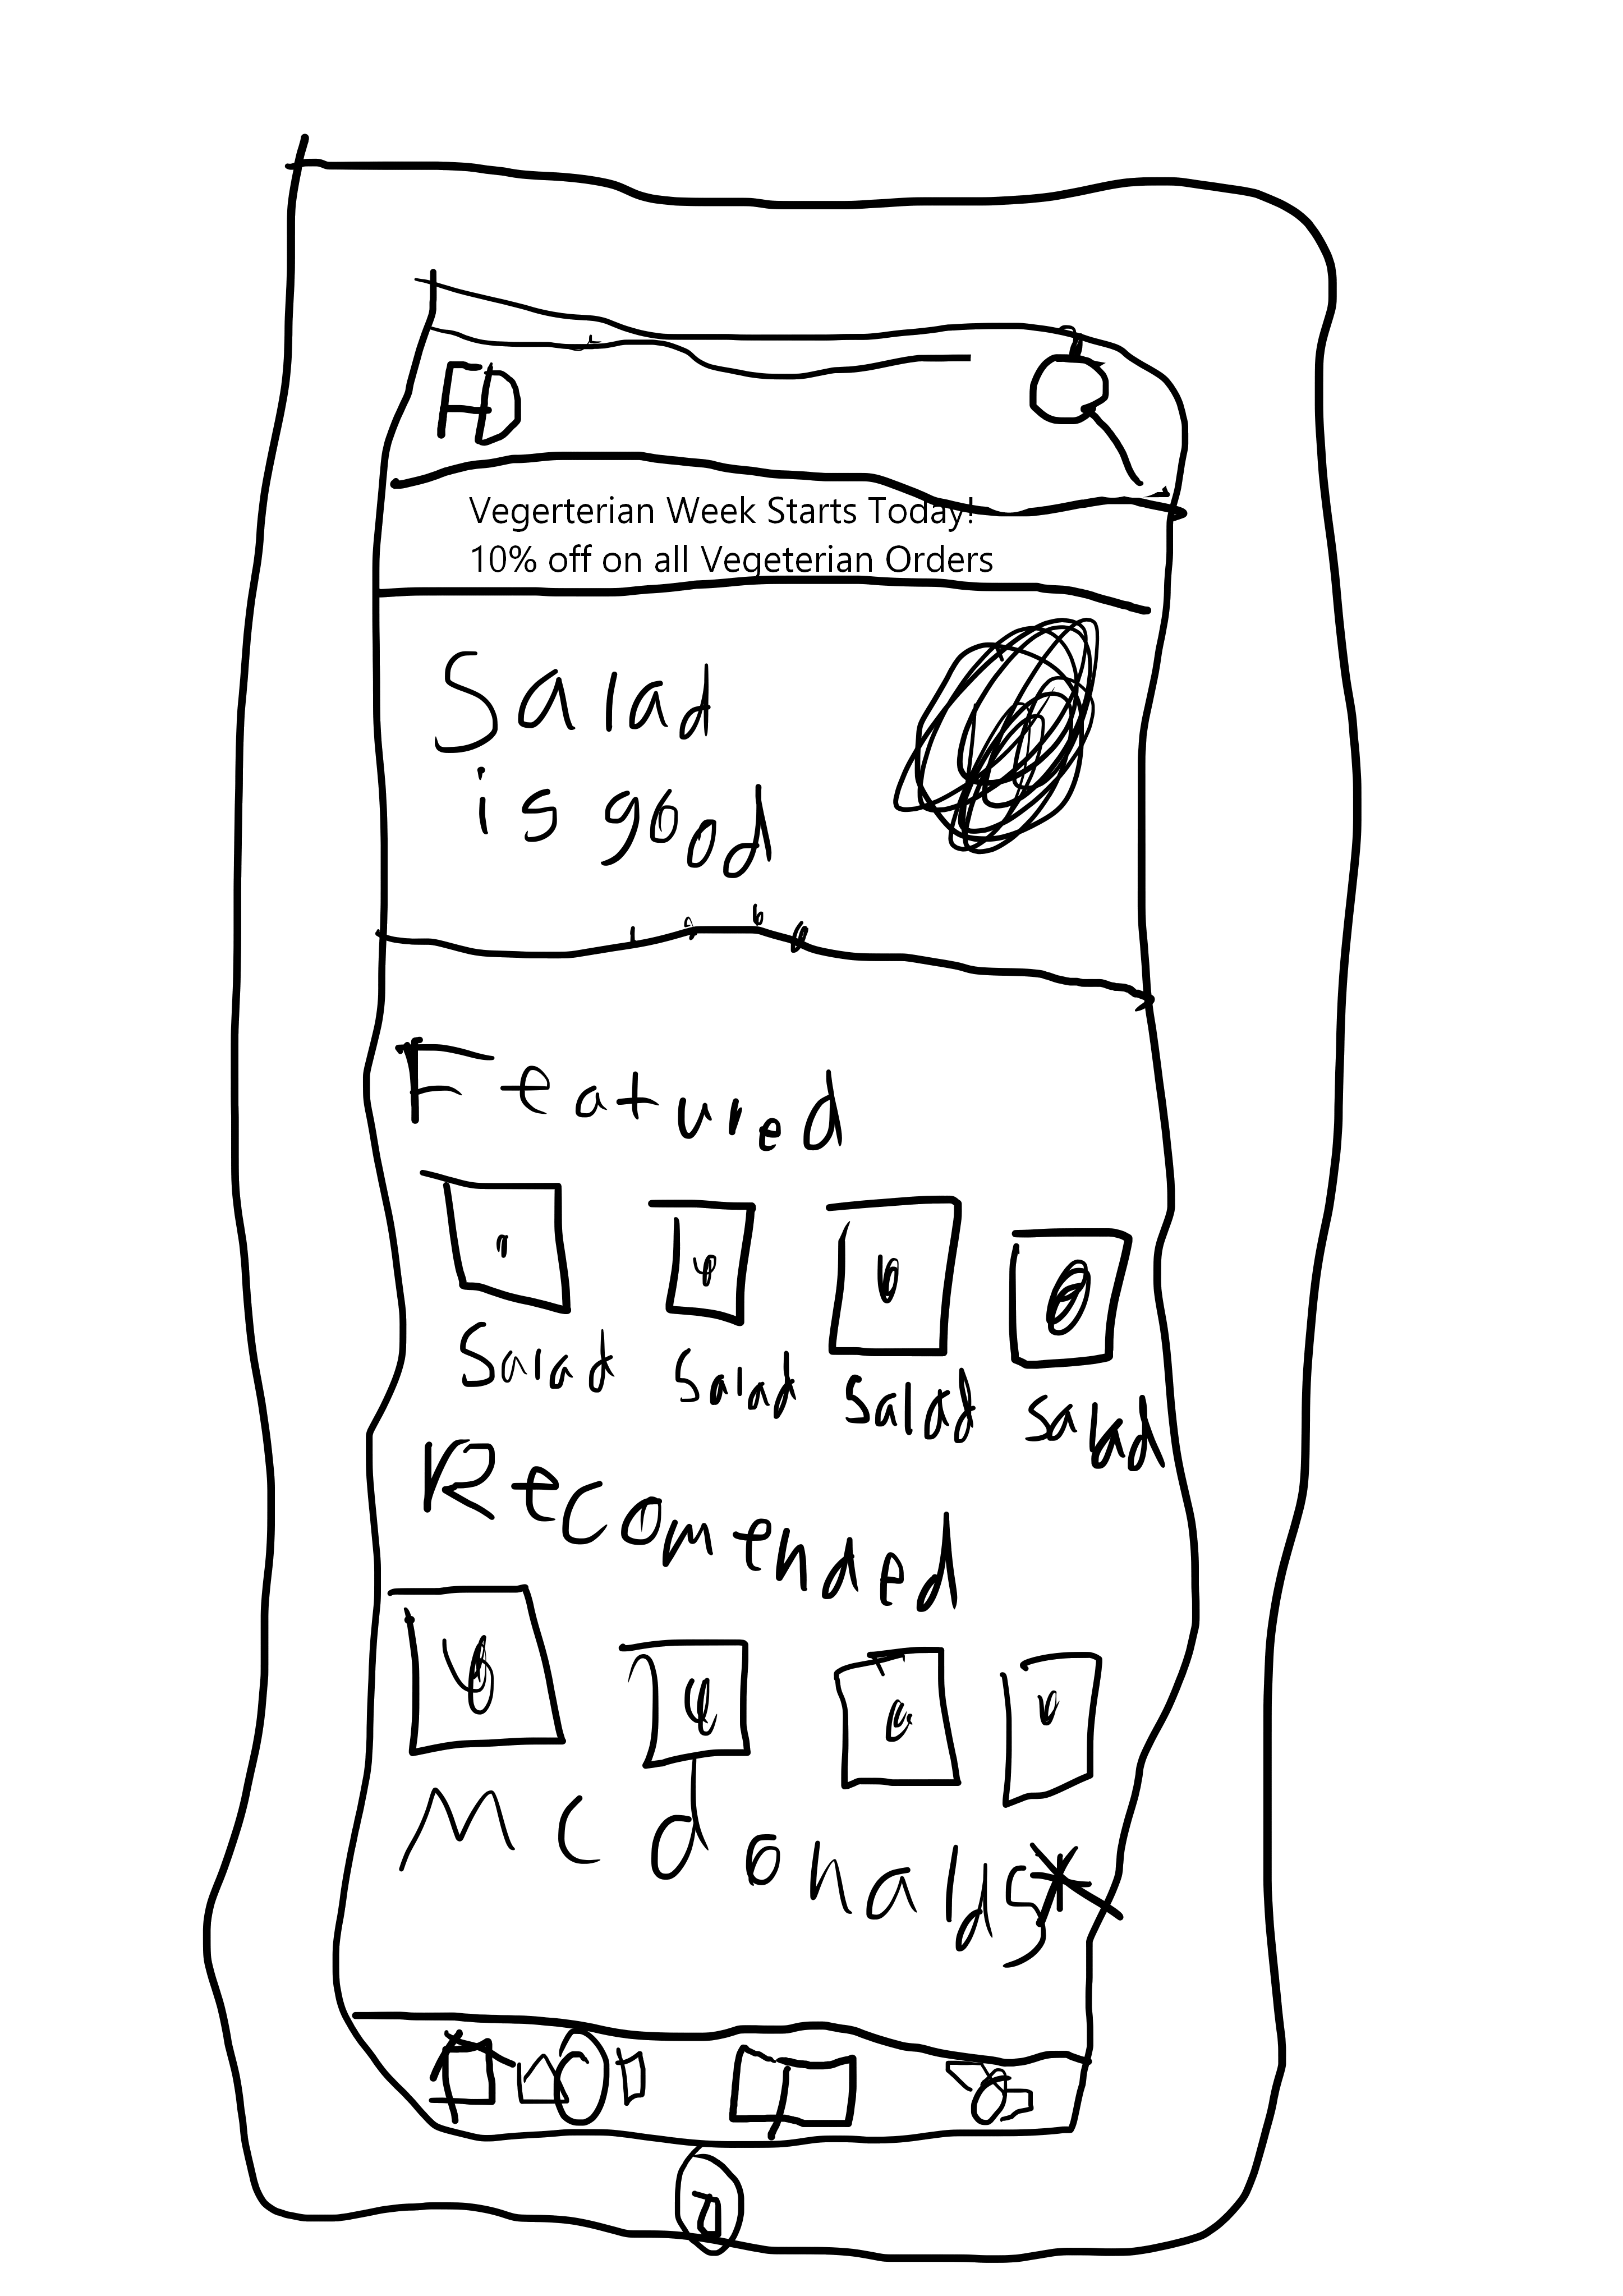 FD
Vegerterian Week Starts Today!
10% off on all Vegeterian Orders
Salad
is good
Featured
Salad Salad Salad Salad
Recomended
Mcdonalds*